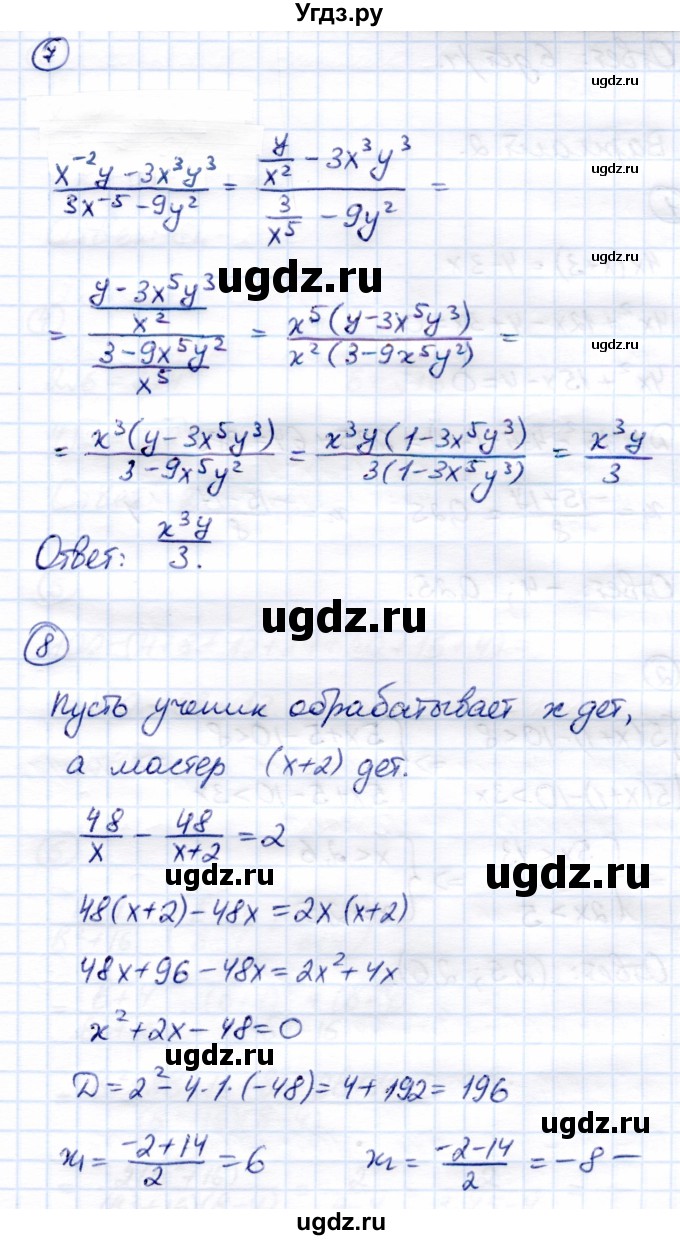 Угдз.ру
7
ugdz.ru
(x⁻²y − 3x³y³)/(3x⁻⁵ − 9y²) = (y/x² − 3x³y³)/(3/x⁵ − 9y²) =
ugdz.ru
ugdz.ru
ugdz.ru
= ((y − 3x⁵y³)/x²)/((3 − 9x⁵y²)/x⁵) = x⁵(y − 3x⁵y³)/x²(3 − 9x⁵y²) =
ugdz.ru
= x³(y − 3x⁵y³)/(3 − 9x⁵y²) = x³y(1 − 3x⁵y³)/3(1 − 3x⁵y³) = x³y/3
Ответ: x³y/3.
ugdz.ru
ugdz.ru
8
Пусть ученик обрабатывает x дет,
а мастер (x+2) дет.
48/x − 48/(x+2) = 2
ugdz.ru
ugdz.ru
48(x+2) − 48x = 2x(x+2)
48x + 96 − 48x = 2x² + 4x
x² + 2x − 48 = 0
ugdz.ru
Д = 2² − 4·1·(−48) = 4 + 192 = 196
ugdz.ru
x₁ = (−2+14)/2 = 6 x₂ = (−2−14)/2 = −8 −
ugdz.ru